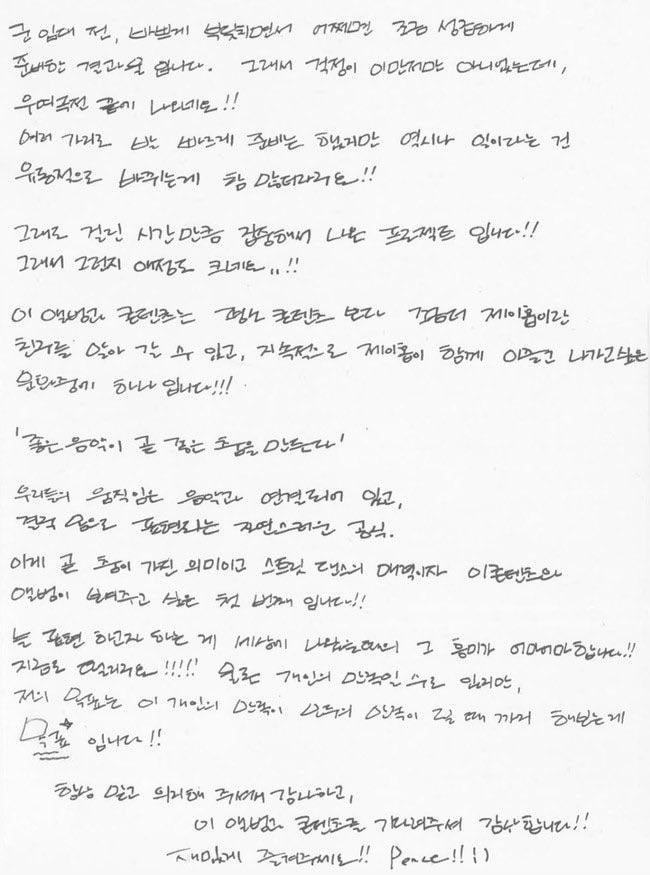 군 입대 전, 바쁘게 부딪히면서 어쩌면 조금 성급하게
준비한 결과물 입니다. 그래서 걱정이 이만저만 아니었는데,
우여곡전 끝에 나오네요!!
여러 가지로 발 빠르게 준비는 했지만 역시나 일이라는 건
유동적으로 바뀌는게 참 많더라구요!!
그래도 걸린 시간만큼 집중해서 나온 프로젝트 입니다!!
그래서 그런지 애정도 크네요..!!
이 앨범과 콘텐츠는 평소 콘텐츠 보다 좀더 제이홉이란
친구를 알아 갈 수 있고, 지속적으로 제이홉이 함께 이끌고 나가고싶은
문화중에 하나 입니다!!!
'좋은 음악이 곧 좋은 춤을 만든다'
우리들의 움직임은 음악과 연결되어 있고,
결국 몸으로 표현하는 자연스러운 공식.
이게 곧 춤이 가진 의미이고 스트릿 댄스의 매력이자 이 콘텐츠와
앨범이 보여주고 싶은 첫 번째 입니다!!
늘 표현 하고자 하는 게 세상에 나왔을때의 그 흥미가 어마어마합니다!!
지금도 떨리구요!!!!! 물론 개인의 만족일 수도 있지만,
저의 목표는 이 개인의 만족이 모두의 만족이 될 때 까지 해보는게
목표 입니다!!
항상 믿고 의지해 주셔서 감사하고,
이 앨범과 콘텐츠를 기다려주셔 감사합니다!!
재밌게 즐겨주세요!! Peace!! :)